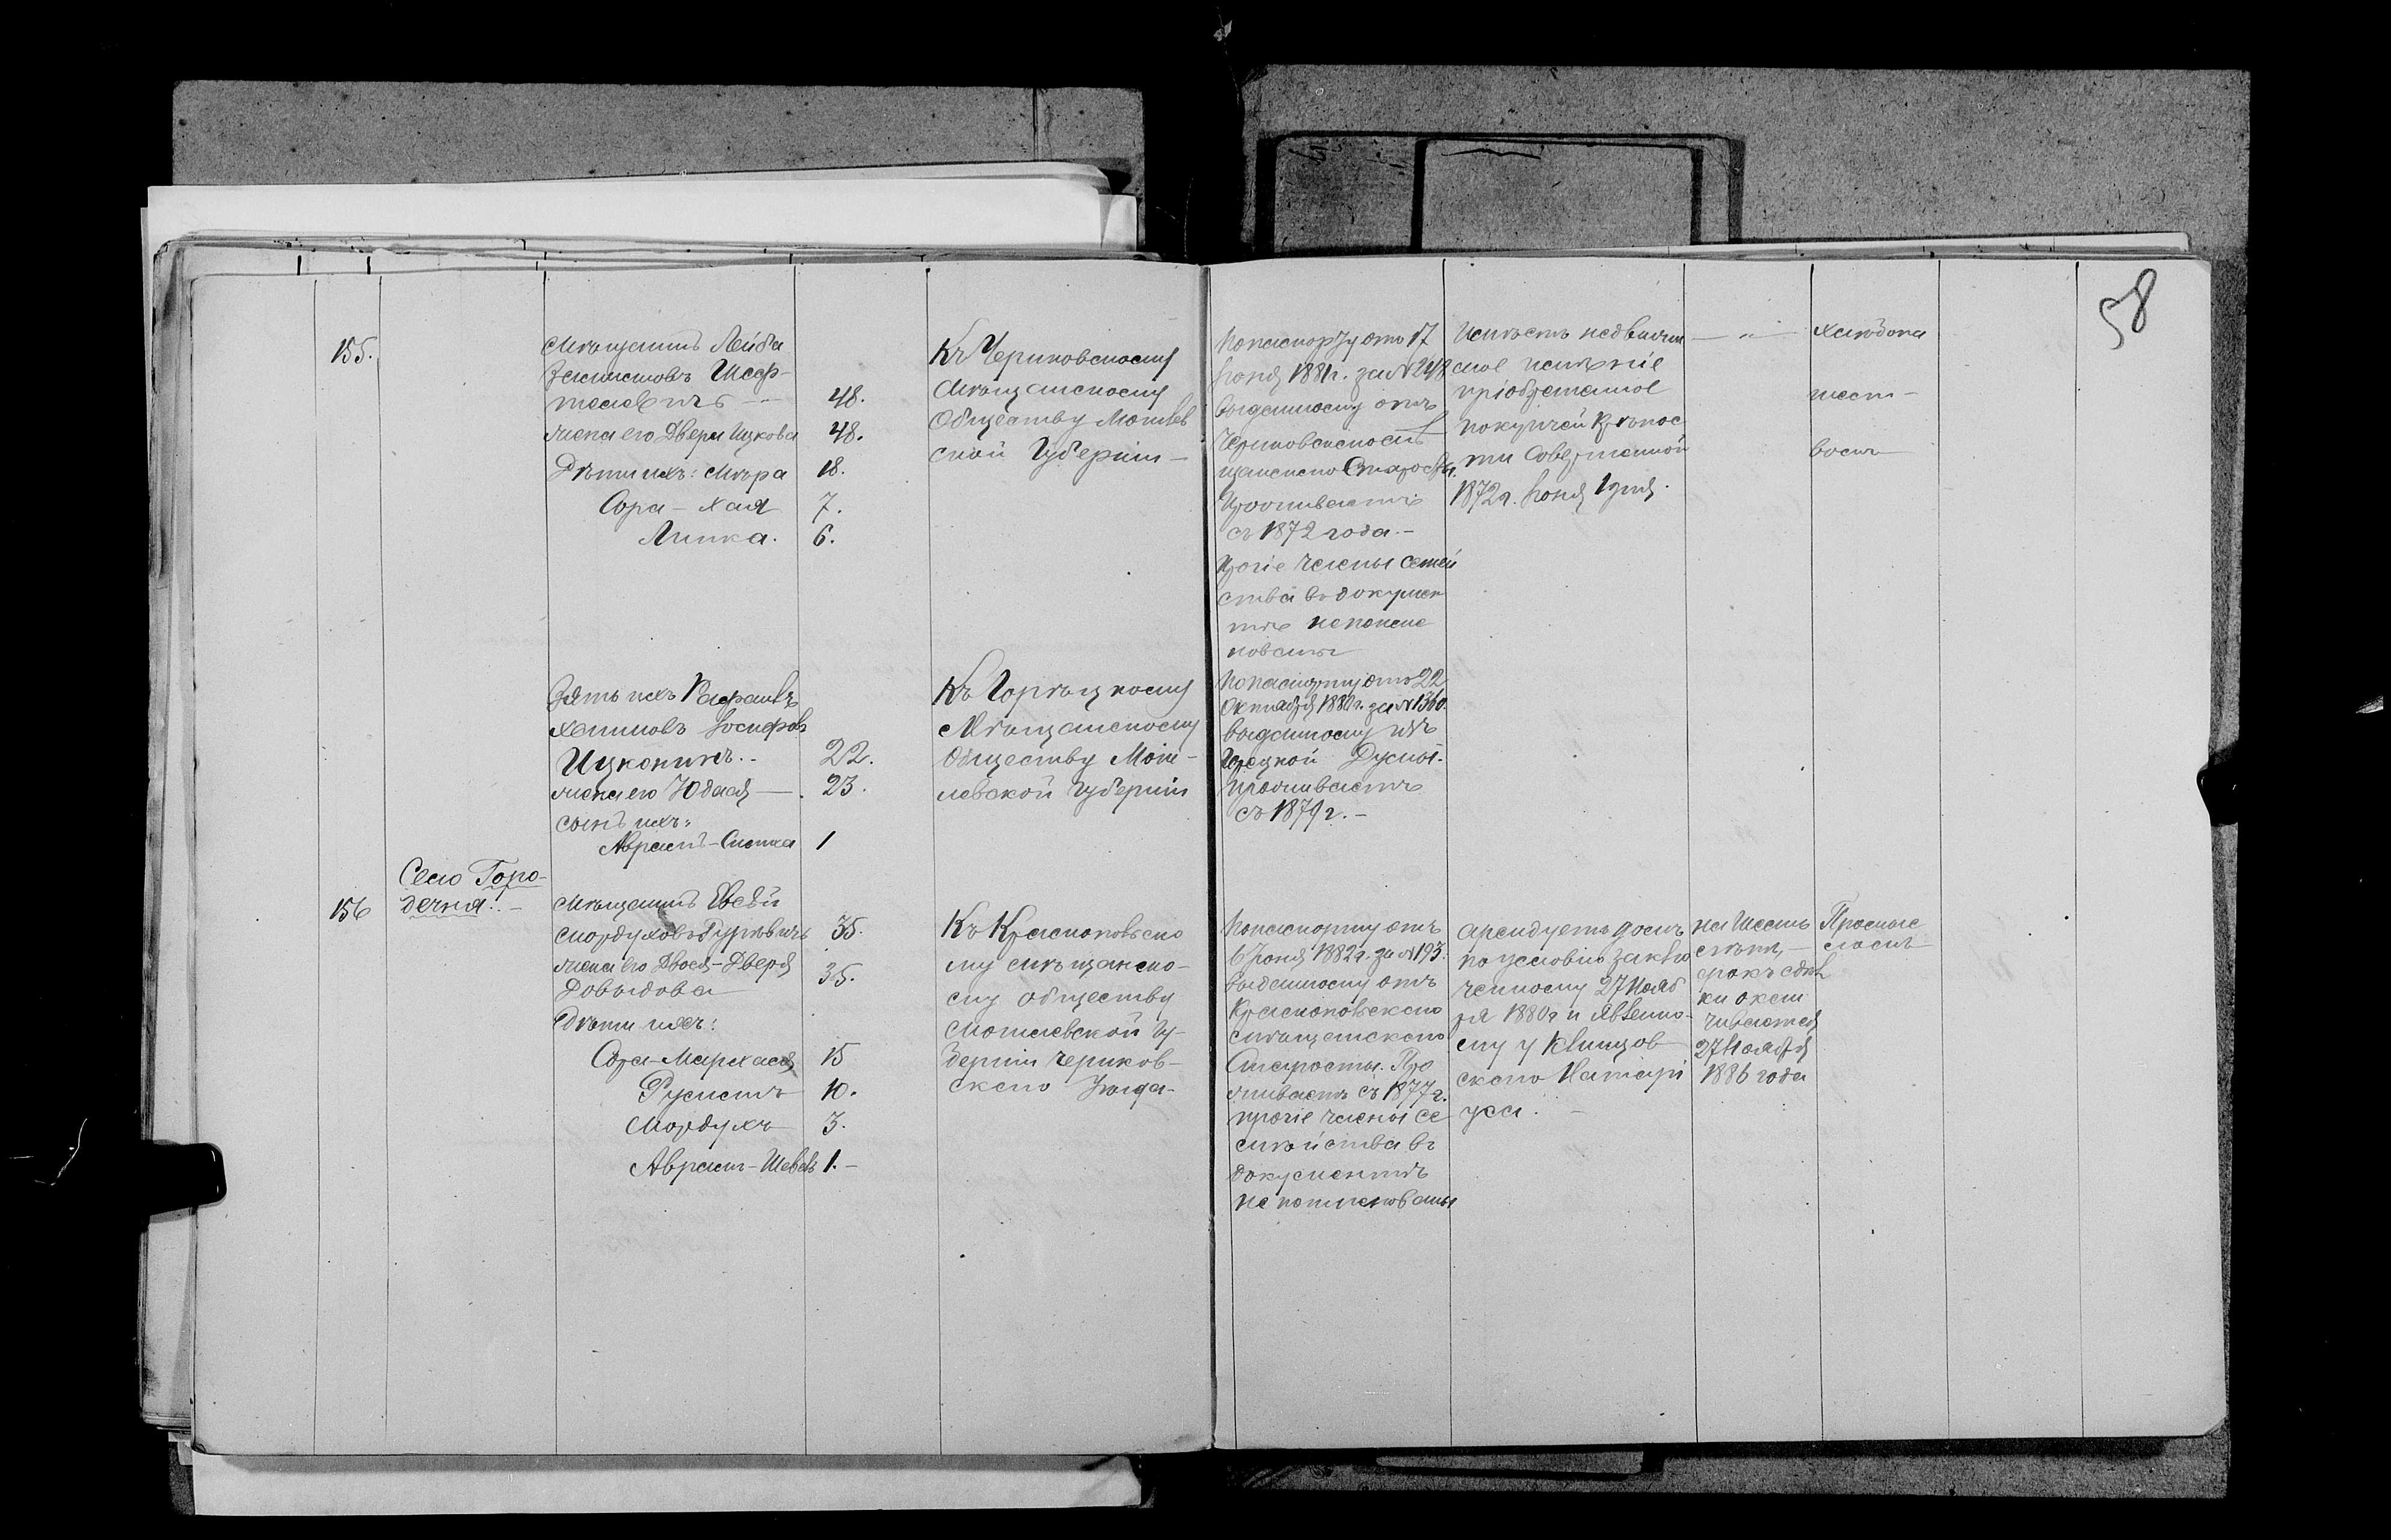 58
155.
Мѣщанинъ Лейба
Залмановъ Шеф-
телевичъ — 48.
жена его Двера Ицкова 48.
Дѣти ихъ: Мѣра 18.
Сора-Хая 7.
Липка. 6.
Къ Чериковскому
Мѣщанскому
Обществу Могилев
ской Губерніи —
По паспорту отъ 17
Іюня 1881г. за № 248
выданному отъ
Чериковского мѣ
щанскаго Старосты.
Проживаетъ
съ 1872 года. —
Прочіе члены семей
ства въ докумен
тѣ не поиме
нованы
Имѣетъ недвижи
мое имѣніе
пріобретенное
покупчей крѣпос
ти совершенной
1872г. Іюня 1 дня.
— " —
Хлѣбопа
шест-
вомъ
Зять ихъ Рафаилъ
Хаимовъ Іосифовъ
Ицконинъ. — 22.
жена его Юдася — 23.
сынъ ихъ:
Абрамъ-Симка 1
Къ Горѣцкому
Мѣщанскому
Обществу Моги-
левской Губерніи
По паспорту отъ 22
Октября 1880г. за № 1360.
выданному изъ
Горецкой Думы.
Проживаетъ
съ 1879г. —
156
Село Горо-
дечня. —
Мѣщанинъ Евсѣй
Мордуховъ Гуревичъ 35.
жена его Двося-Дверя
Довыдова 35.
Дѣти ихъ:
Сора-Мархася 15
Румистъ 10.
Мордухъ 3.
Абрамъ-Шевель 1. —
Къ Краснопольско
му мѣщанско-
му обществу
Могилевской Гу-
берніи Чериков-
скаго Уѣзда.
По паспорту отъ
6 Іюня 1882г. за № 193.
выданному отъ
Краснопольскаго
мѣщанскаго
Старосты. Про
живаетъ съ 1877г.
прочіе члены се
мѣйства въ
документѣ
не поименованы
Арендуетъ домъ
по условію заклю
ченному 27 Нояб
ря 1880г и явленно-
му у Клинцов
скаго Натарі
уса. —
на Шесть
лѣтъ, —
срокъ сдѣл
ки окан
чивается
27 Ноября
1886 года
Промысе
ломъ